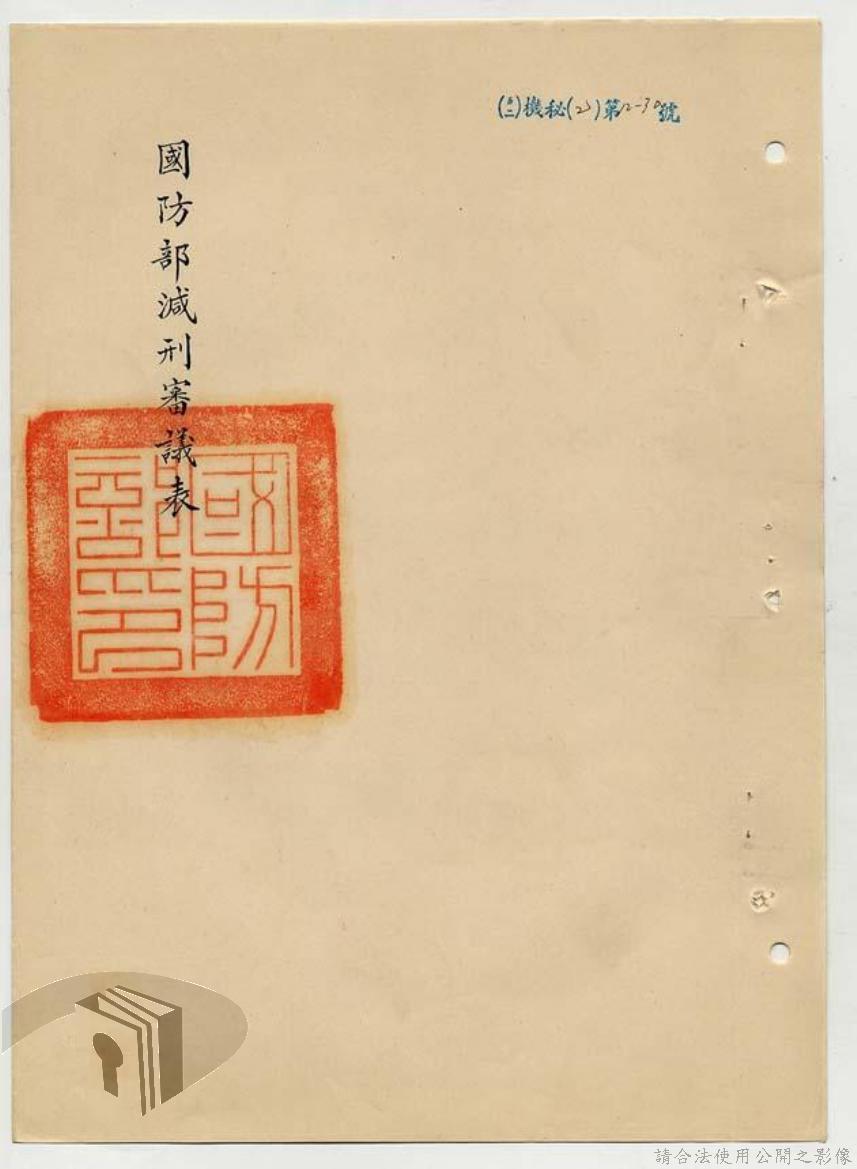 (五二)機秘(2)第12-30號
國防部減刑審議表
國防部印
請合法使用公開之影像